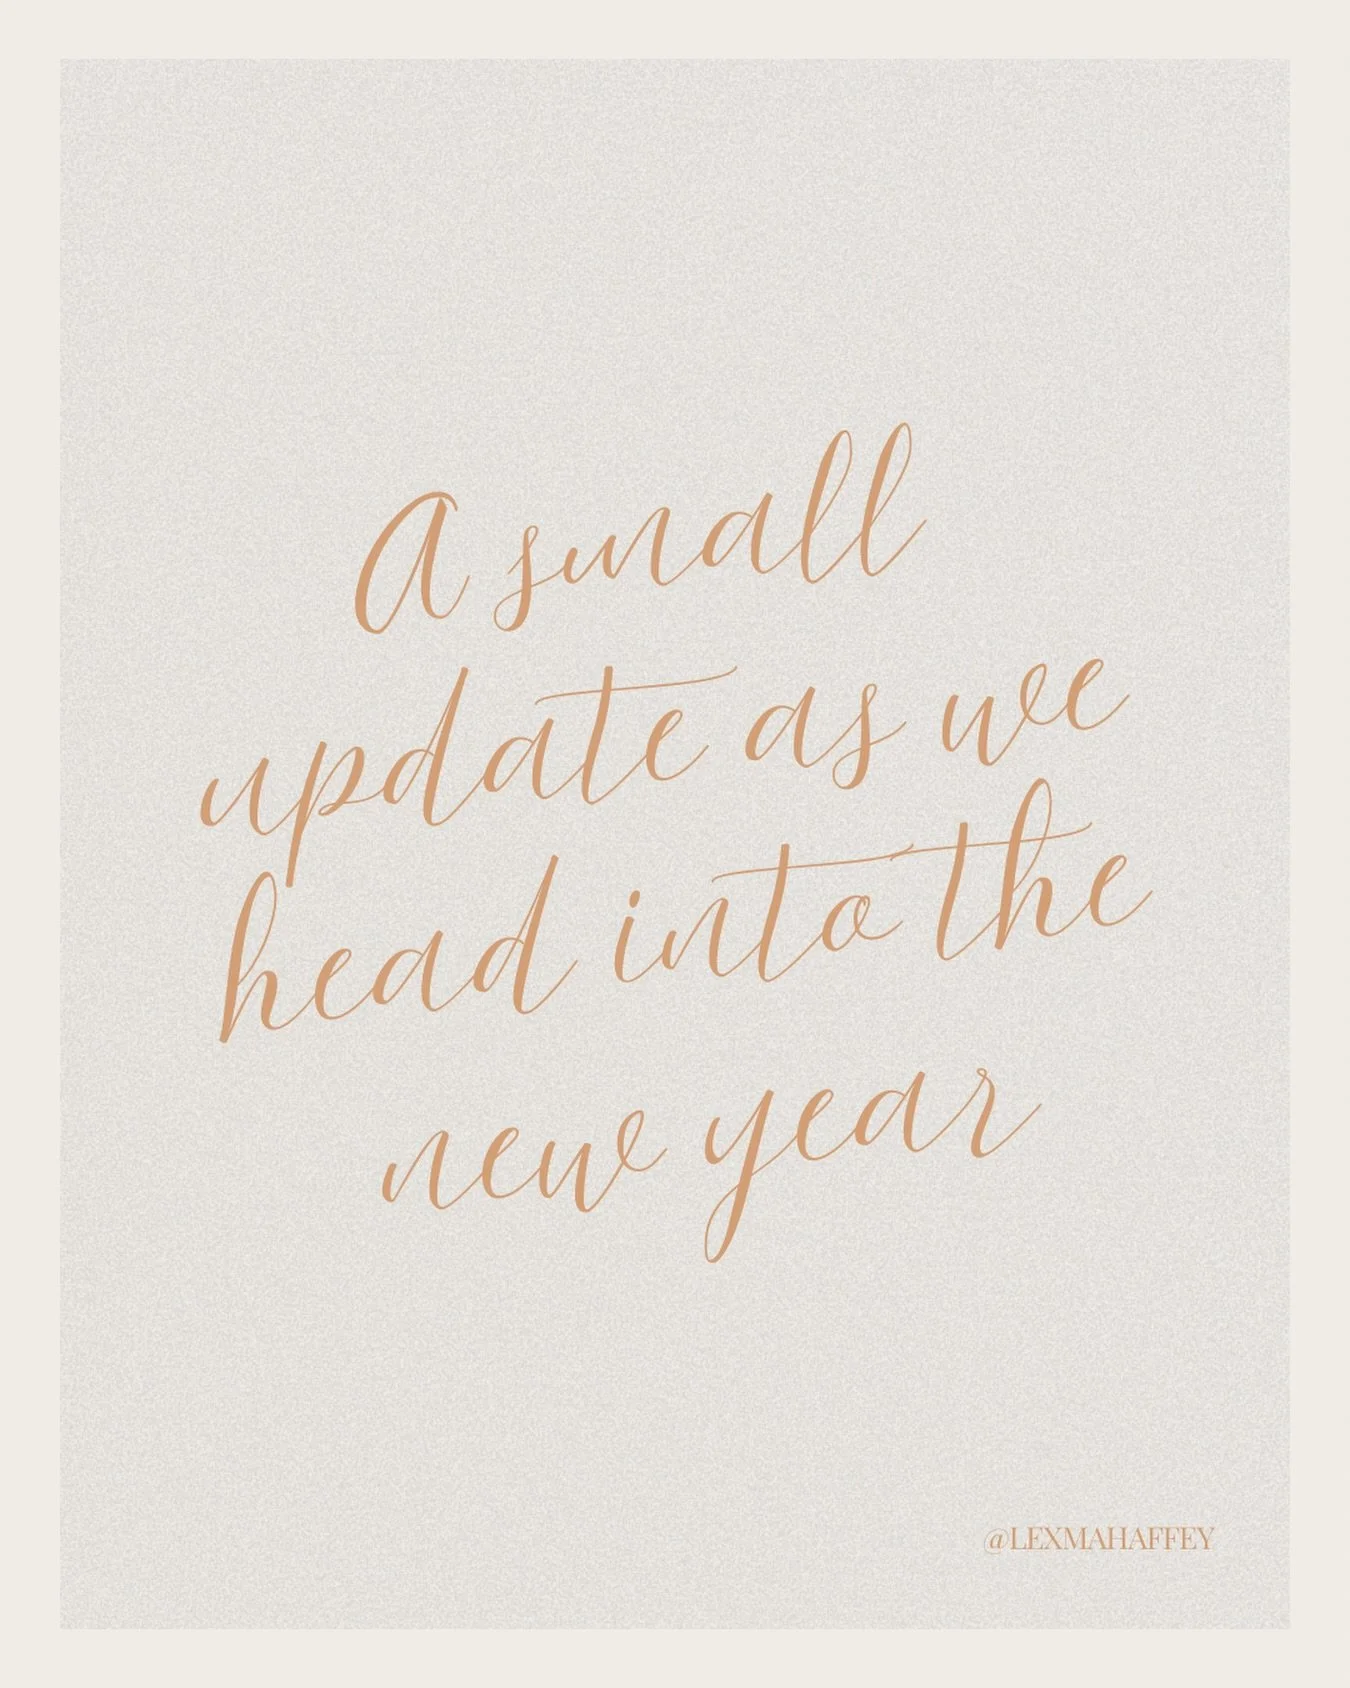 A small
update as we
head into the
new year
@LEXMAHAFFEY